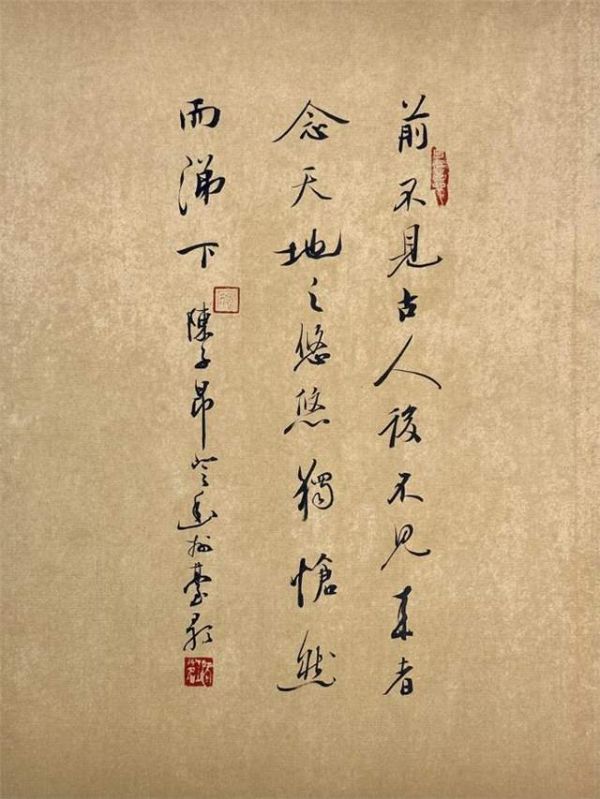 前不見古人後不見來者
念天地之悠悠獨愴然
而涕下
陳子昂登幽州臺歌